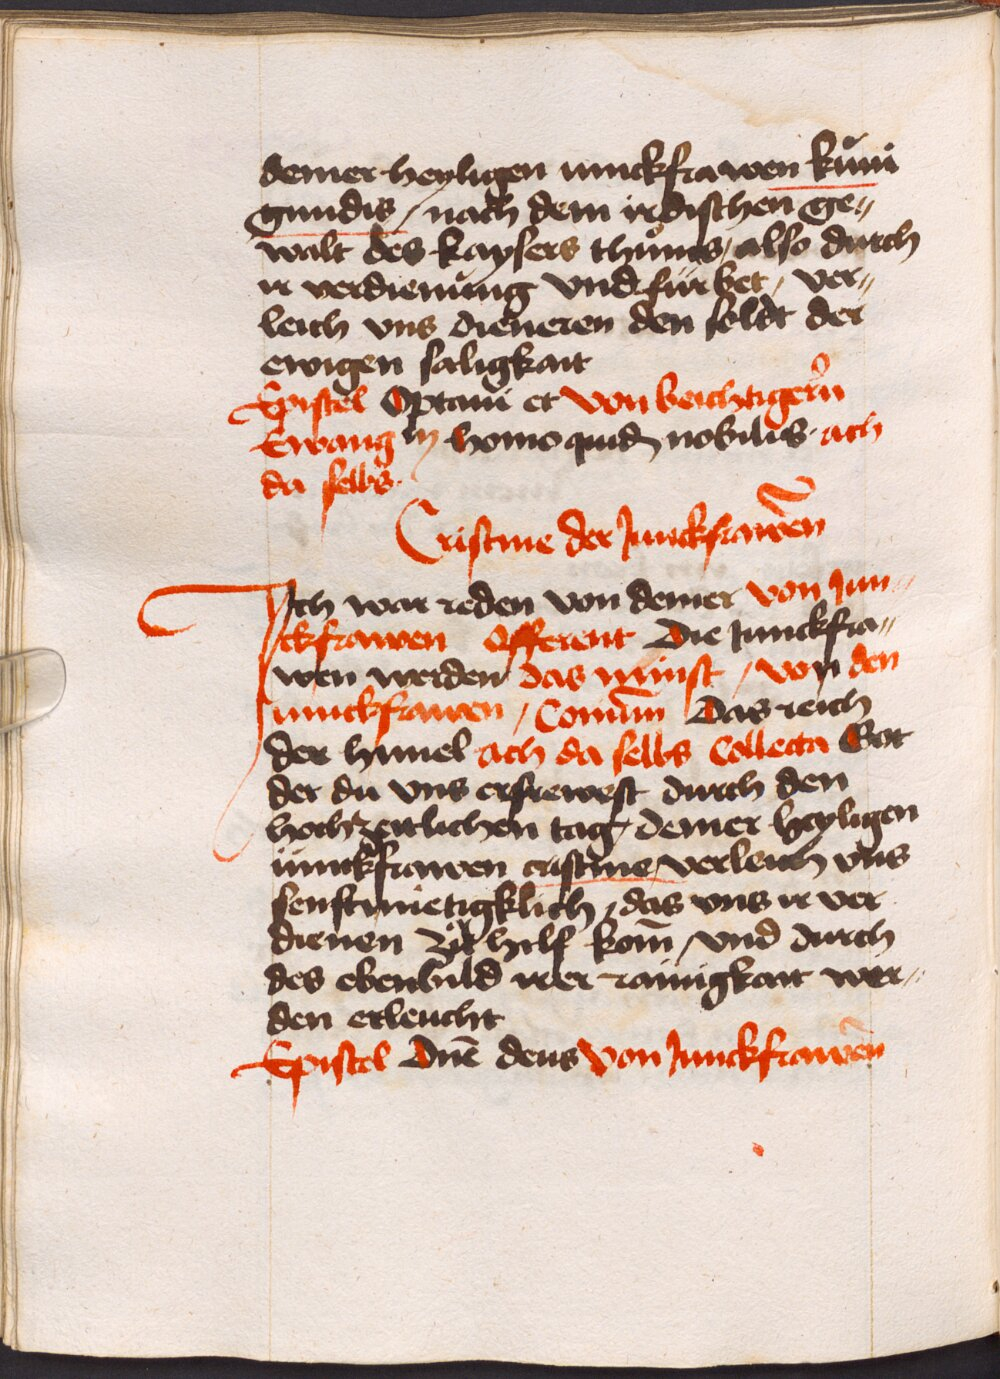 deiner heyligen iunckfrawen kůni
gundis / nach dem irdischen ge„
walt des kaysers thůms / also durch
ir verdienůng vnd fürbet / ver„
leich vns dieneren den soldt der
ewigen saligkait
Epistel Optaui et von beichtigern̄
Ewang homo quidā nobilis · ach
da selbs ·
Cristine der Junckfrawēn
Ich war reden von deiner von Jun„
ckfrawen Offerent Die Junckfra„
wen werden das minst / von den
iunckfrawen / Comūn Das reich
der himel ach da selbs Collecta Got
der du vns erfrewest durch den
hochzeitlichen tag deiner heyligen
iůnckfrawen cristine / verleich vns
senftmietigklich / das vns ir ver
dienen zů hilf kom̄ / vnd durch
des ebenbild irer rainigkait wer„
den erleucht
Epistel Dn̄e deus von Junckfrawēn